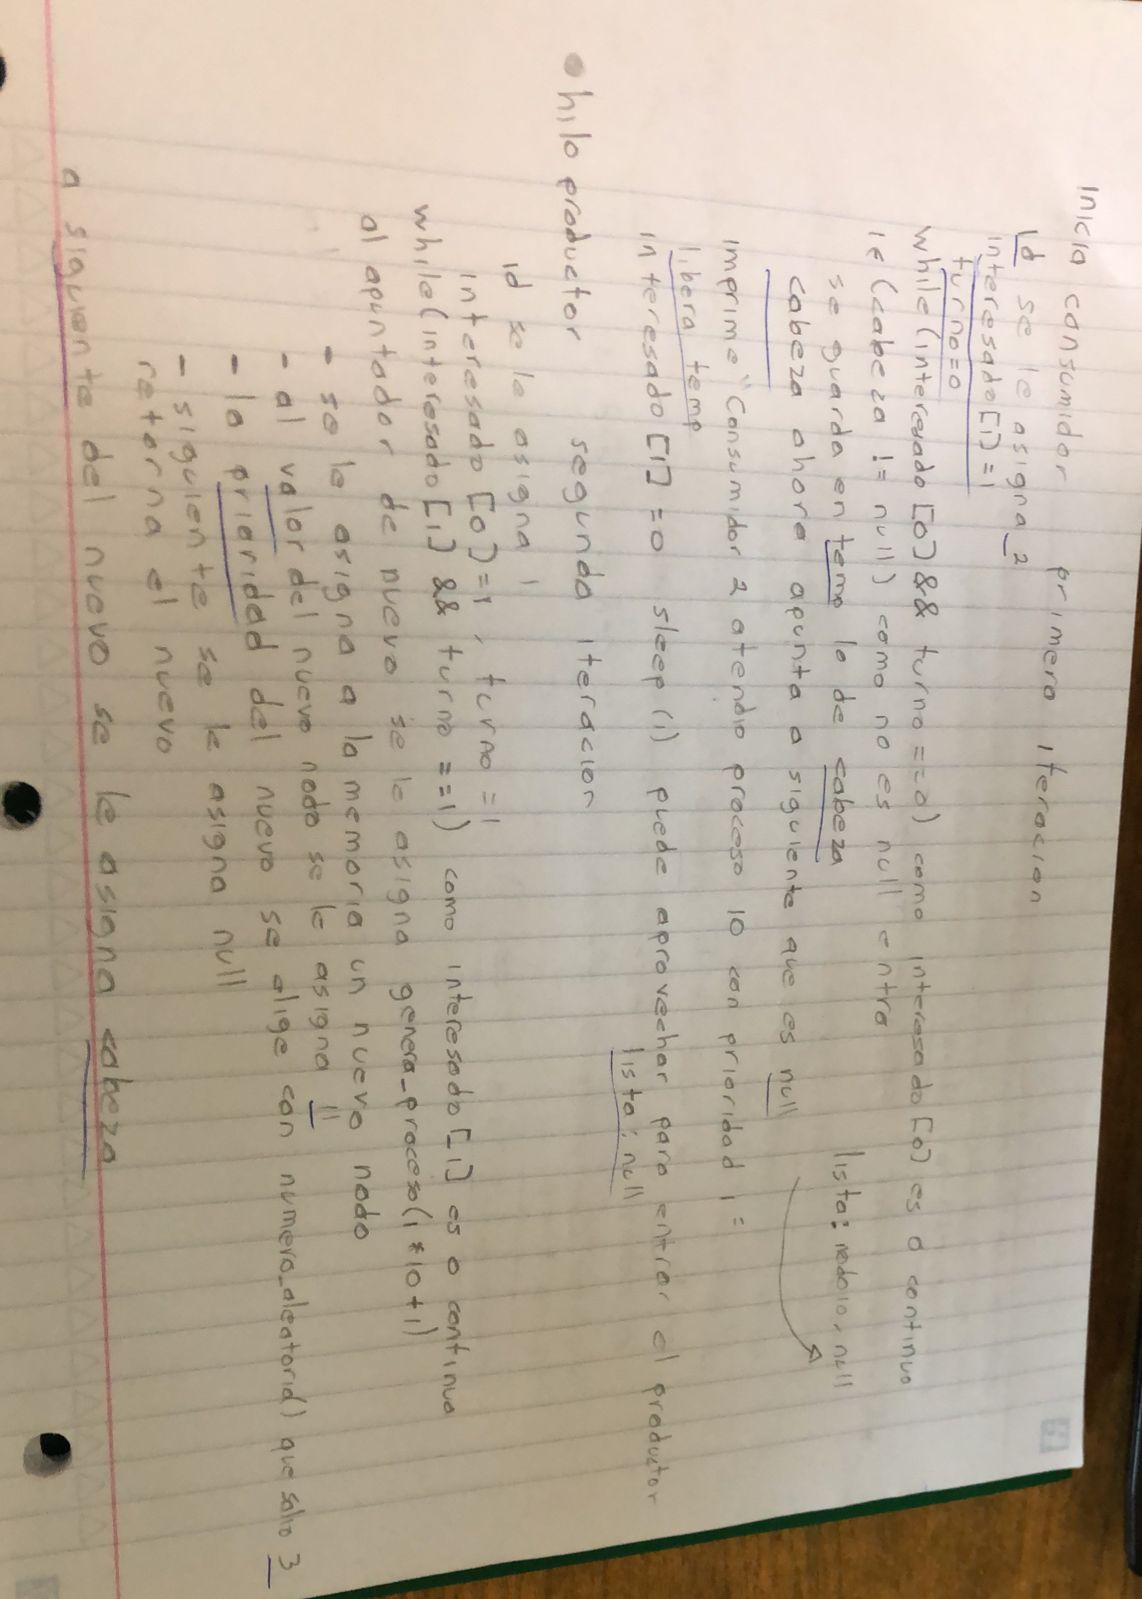 Inicia consumidor primera iteracion
Id se le asigna_2
interesado[1]=1
turno=0
while(interesado[0]&& turno==0) como interesado[0] es 0 continuo
if(cabeza != null) como no es null entra
se guarda en temp lo de cabeza lista: nodo10, null
cabeza ahora apunta a siguiente que es null
imprime "Consumidor 2 atendio proceso 10 con prioridad 1 =
libera temp
interesado[1]=0 sleep(1) puede aprovechar para entrar el productor
lista: null
hilo productor segunda iteracion
id se le asigna 1
interesado[0]=1, turno=1
while(interesado[1] && turno==1) como interesado[1] es 0 continua
al apuntador de nuevo se le asigna genera_proceso(1*10+1)
- se le asigna a la memoria un nuevo nodo
- al valor del nuevo nodo se le asigna 11
- la prioridad del nuevo se elige con numero_aleatorio() que salio 3
- siguiente se le asigna null
retorna el nuevo
a siguiente del nuevo se le asigna cabeza